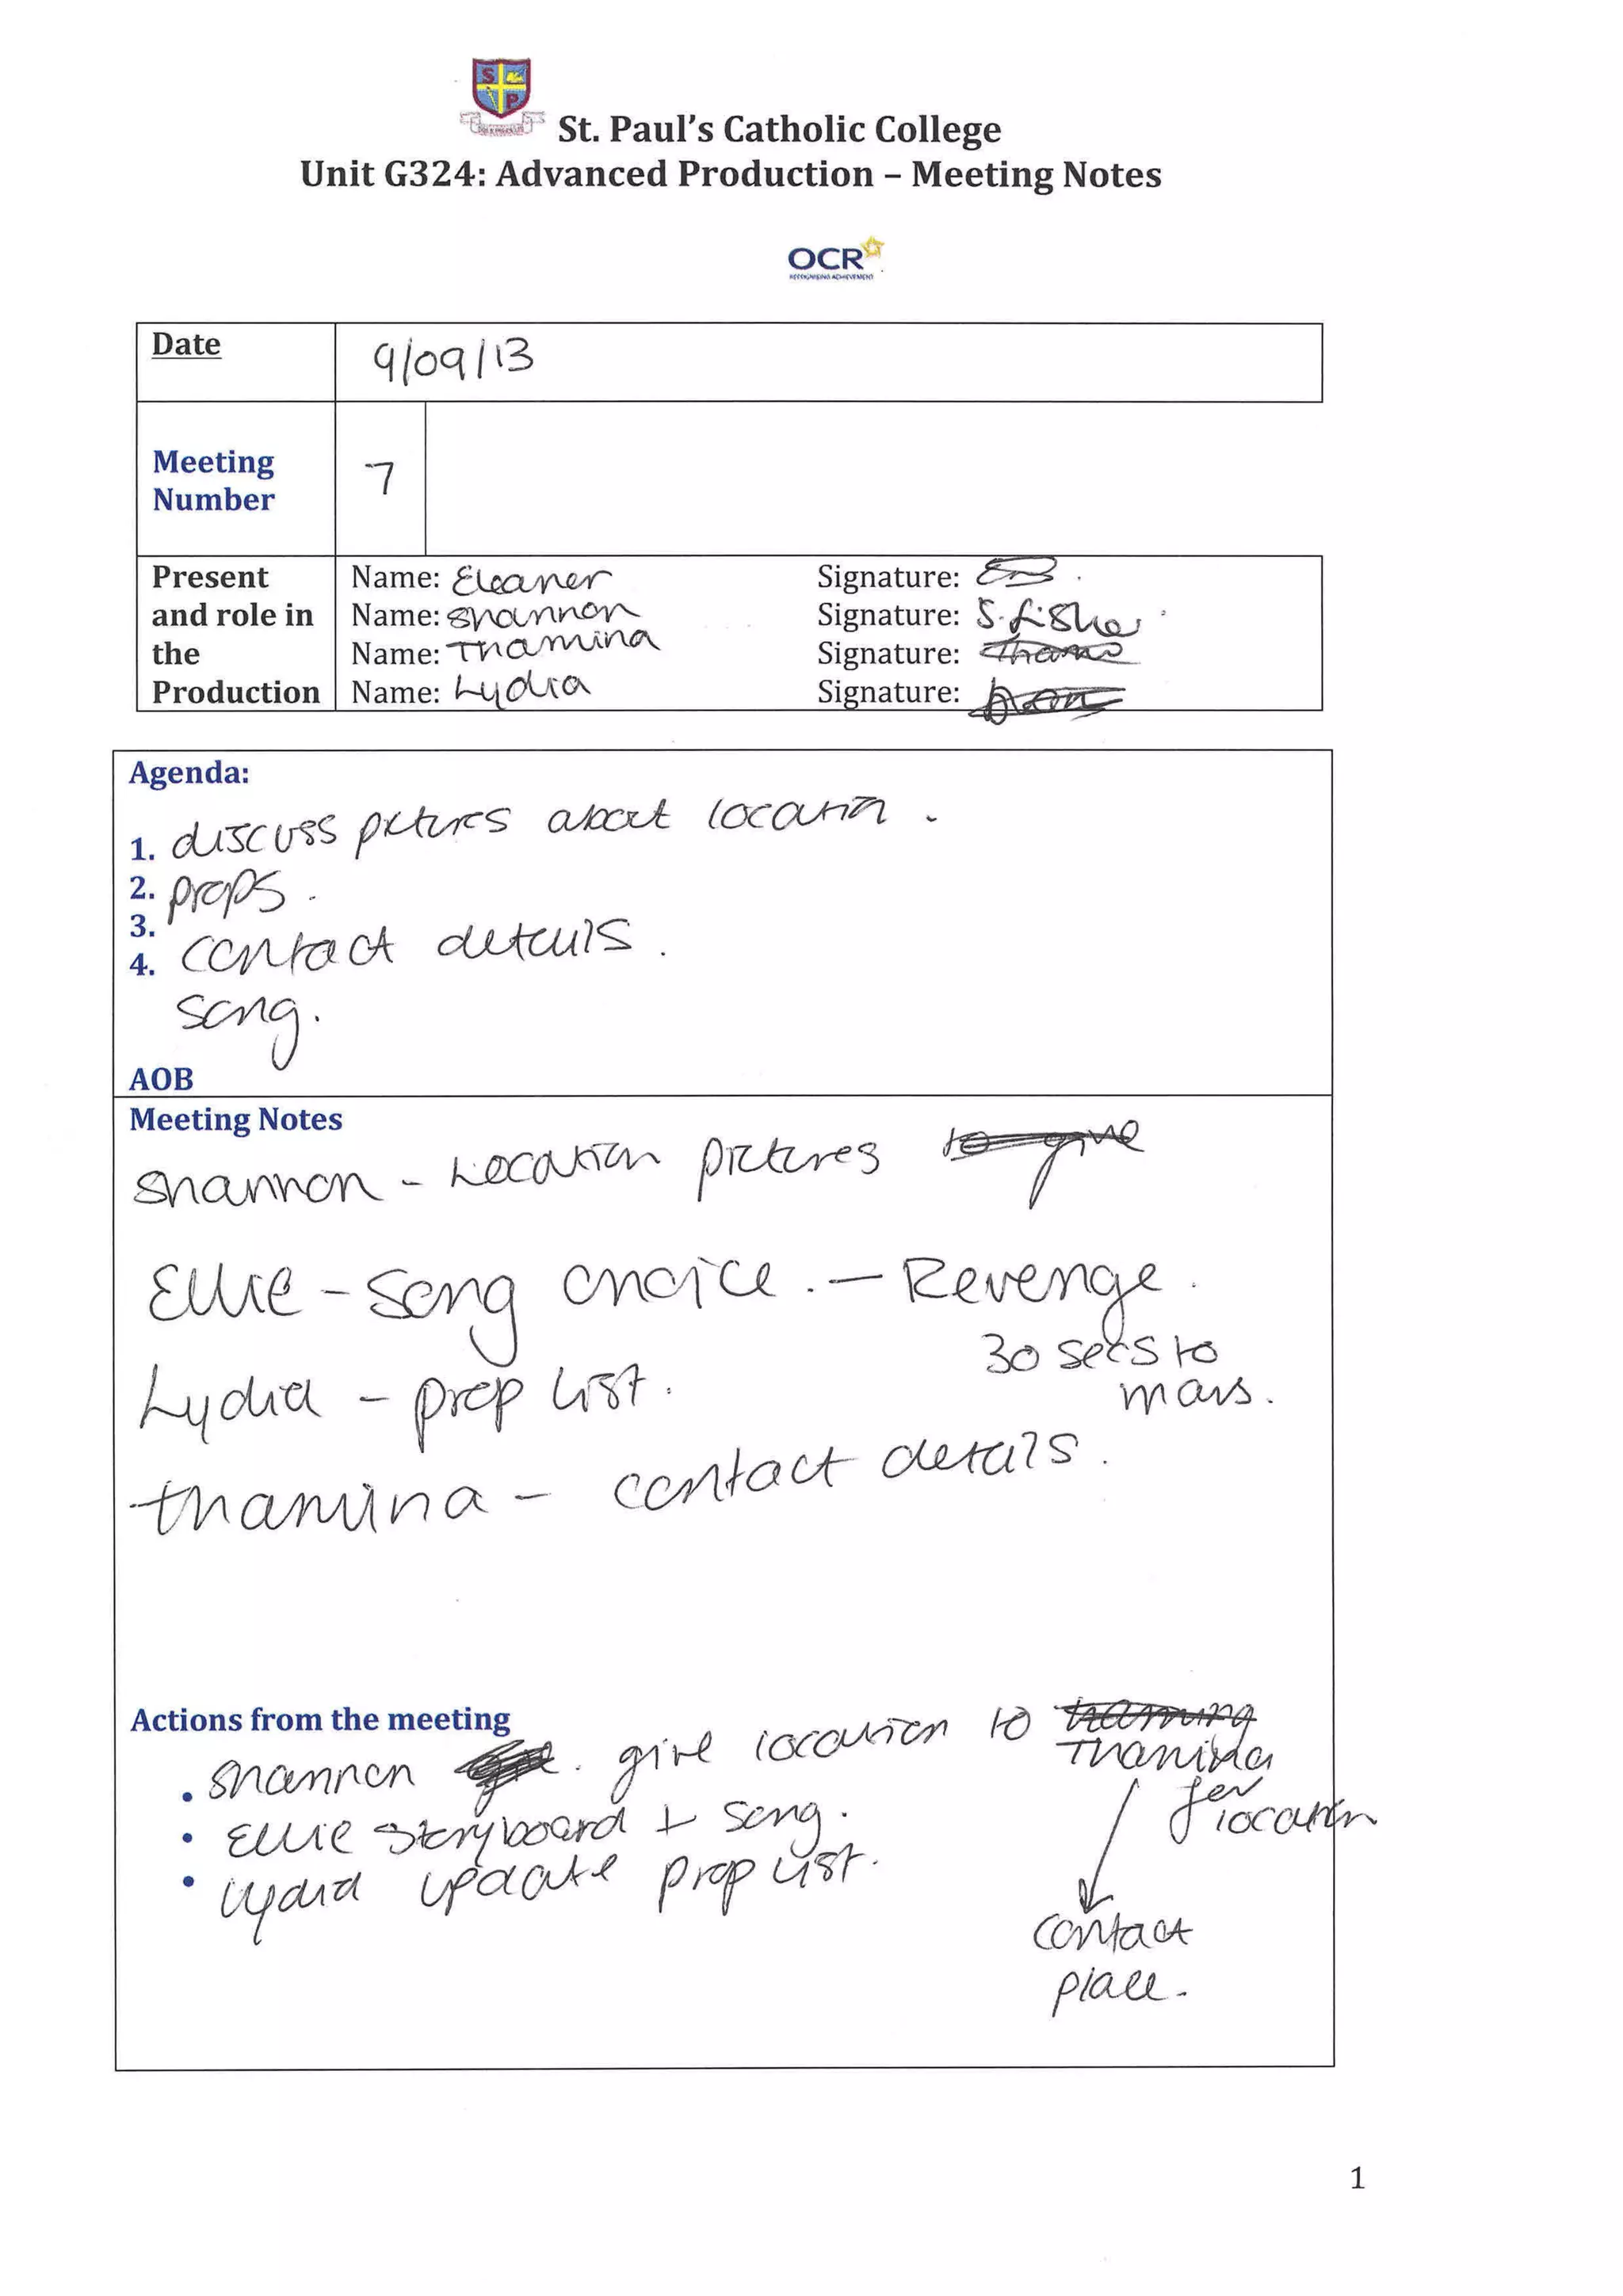 St. Paul's Catholic College
Unit G324: Advanced Production – Meeting Notes
OCR
RECOGNISING ACHIEVEMENT
Date 9/09/13
Meeting Number 7
Present and role in the Production
Name: Eleaner Signature:
Name: Shannon Signature: S.Fisher
Name: Thamina Signature:
Name: Lydia Signature:
Agenda:
1. discuss pictures about location.
2. props.
3.
4. contact details.
song.
AOB
Meeting Notes
Shannon - Location pictures to give
Ellie - Song choice. - Revenge.
30 secs to
mars.
Lydia - prop list.
thamina - contact details.
Actions from the meeting
• Shannon give location to thamina
Thamina
for
location
• Ellie storyboard + song.
• Lydia update prop list.
contact
place.
1